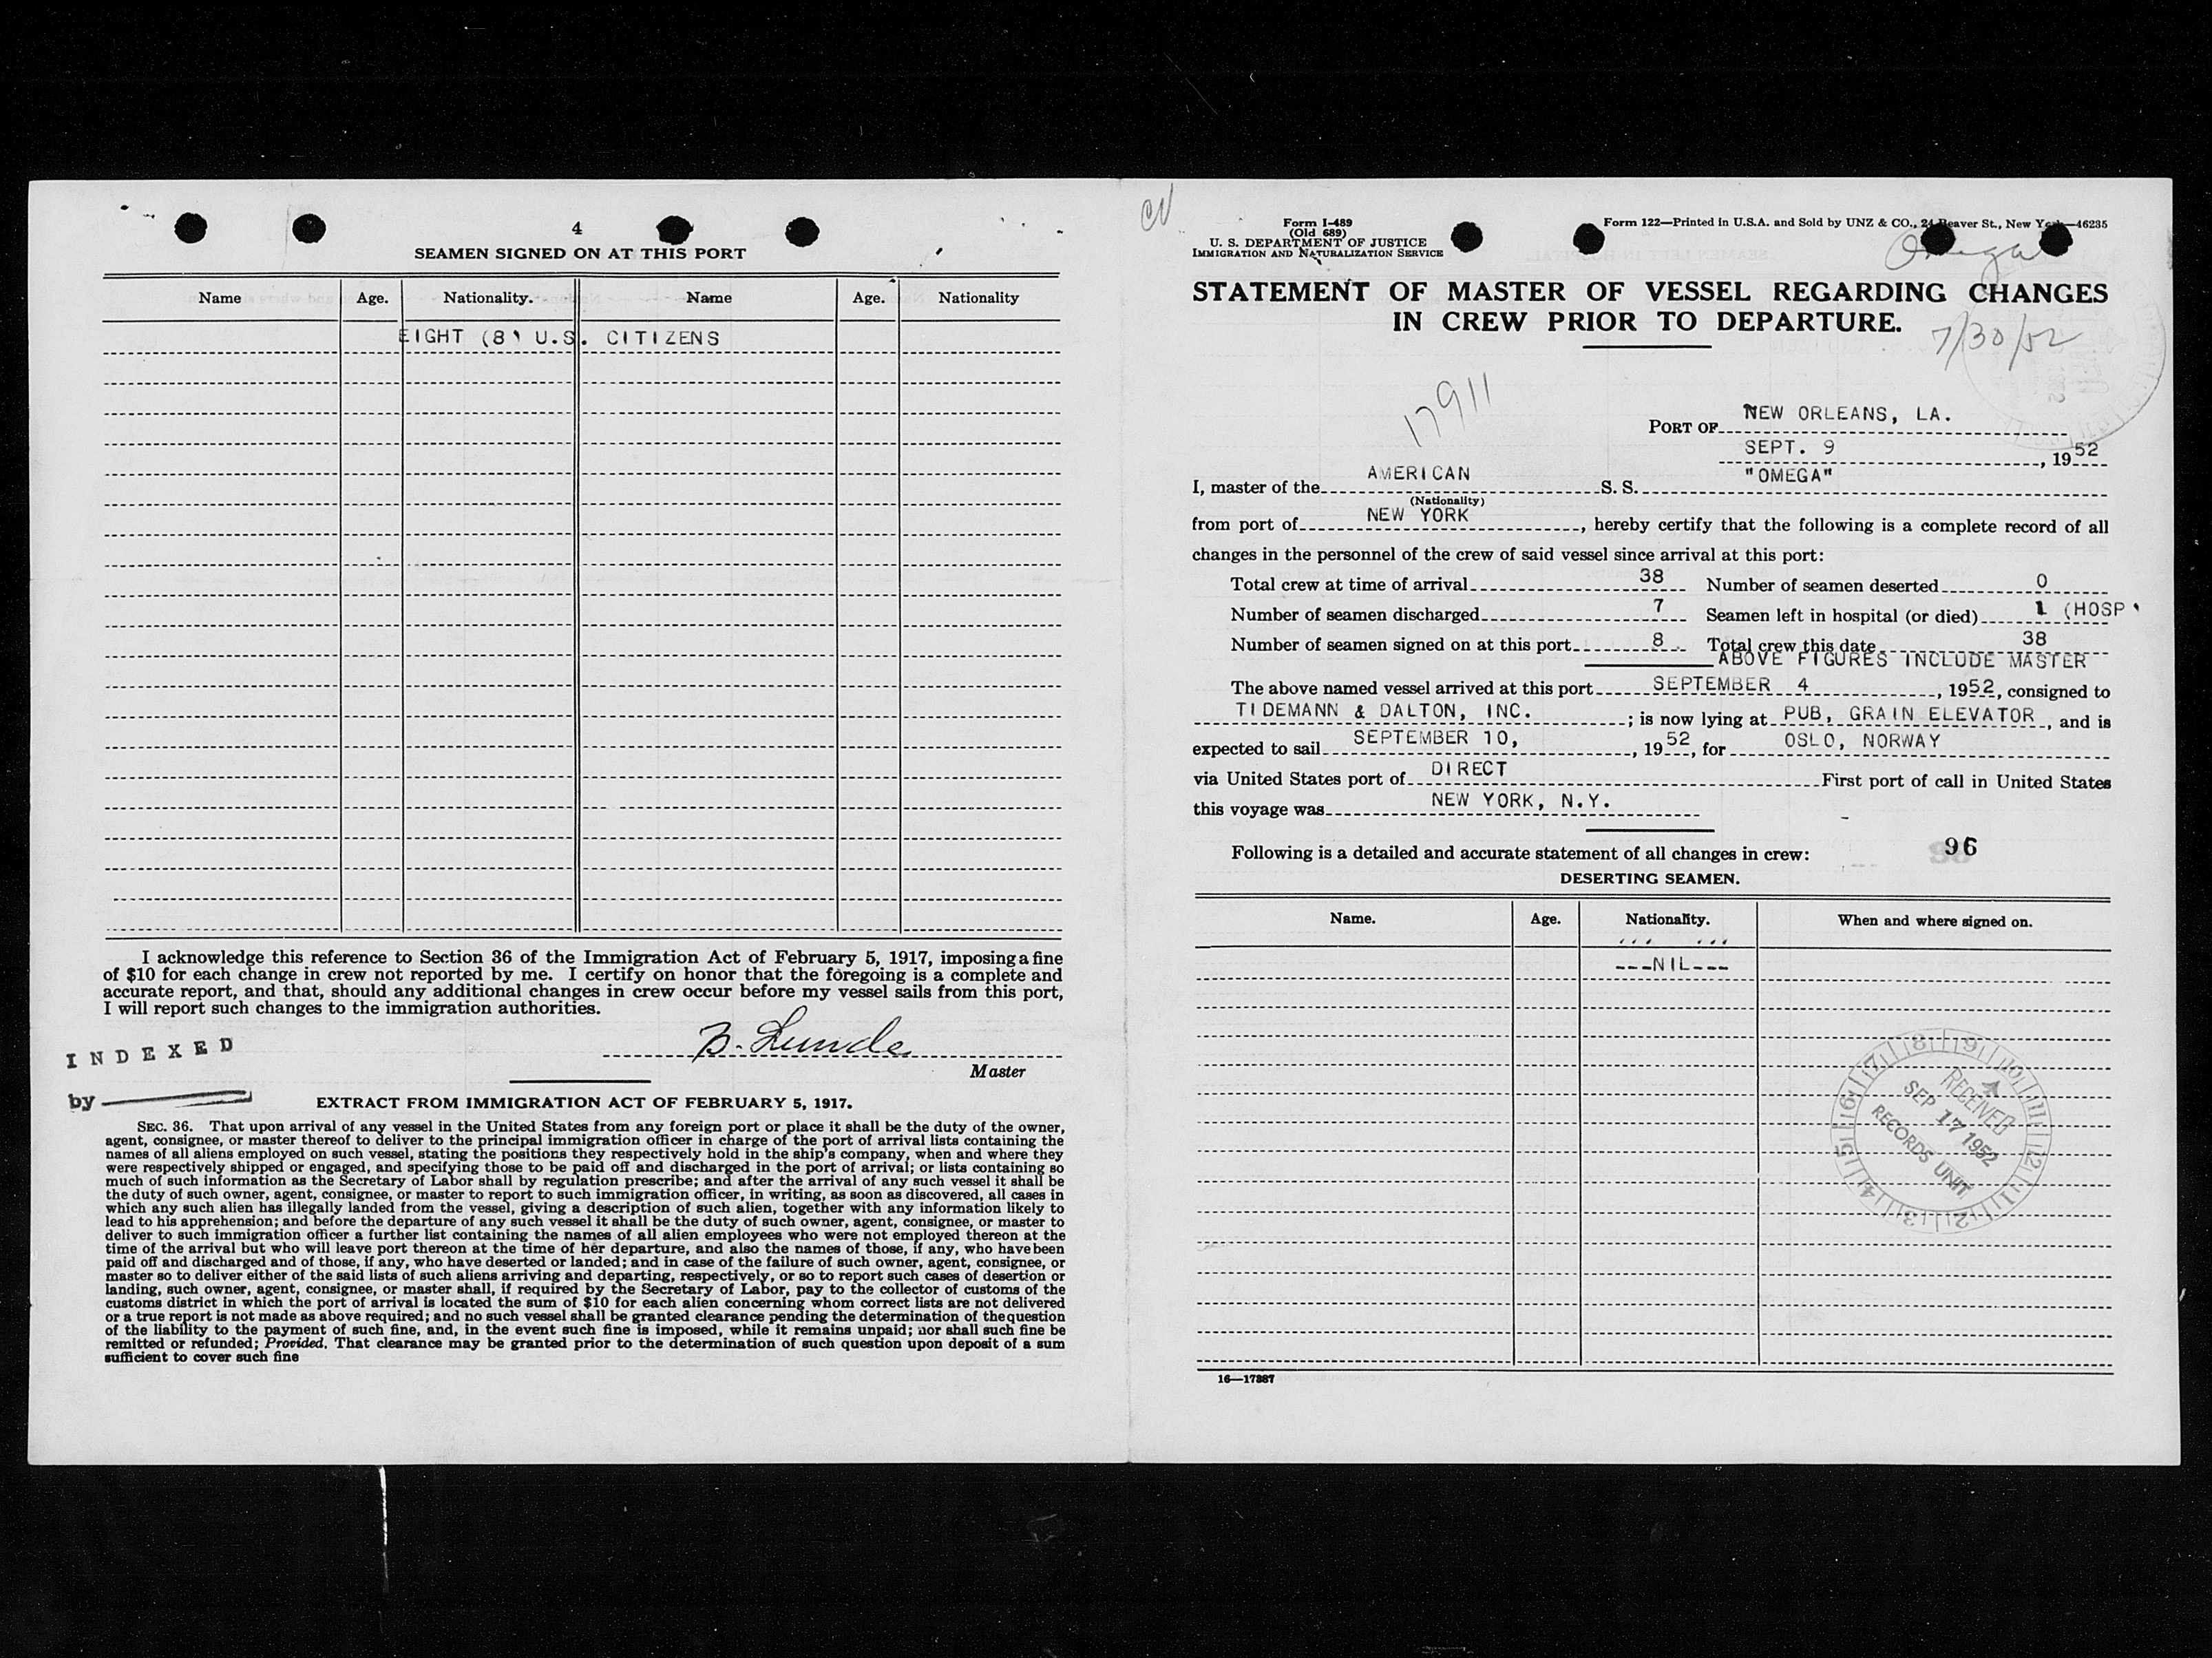 4
SEAMEN SIGNED ON AT THIS PORT
Name Age. Nationality. Name Age. Nationality
EIGHT (8) U.S. CITIZENS
I acknowledge this reference to Section 36 of the Immigration Act of February 5, 1917, imposing a fine
of $10 for each change in crew not reported by me. I certify on honor that the foregoing is a complete and
accurate report, and that, should any additional changes in crew occur before my vessel sails from this port,
I will report such changes to the immigration authorities.
INDEXED
B. Lunde
Master
by
EXTRACT FROM IMMIGRATION ACT OF FEBRUARY 5, 1917.
SEC. 36. That upon arrival of any vessel in the United States from any foreign port or place it shall be the duty of the owner,
agent, consignee, or master thereof to deliver to the principal immigration officer in charge of the port of arrival lists containing the
names of all aliens employed on such vessel, stating the positions they respectively hold in the ship's company, when and where they
were respectively shipped or engaged, and specifying those to be paid off and discharged in the port of arrival; or lists containing so
much of such information as the Secretary of Labor shall by regulation prescribe; and after the arrival of any such vessel it shall be
the duty of such owner, agent, consignee, or master to report to such immigration officer, in writing, as soon as discovered, all cases in
which any such alien has illegally landed from the vessel, giving a description of such alien, together with any information likely to
lead to his apprehension; and before the departure of any such vessel it shall be the duty of such owner, agent, consignee, or master to
deliver to such immigration officer a further list containing the names of all alien employees who were not employed thereon at the
time of the arrival but who will leave port thereon at the time of her departure, and also the names of those, if any, who have been
paid off and discharged and of those, if any, who have deserted or landed; and in case of the failure of such owner, agent, consignee, or
master so to deliver either of the said lists of such aliens arriving and departing, respectively, or so to report such cases of desertion or
landing, such owner, agent, consignee, or master shall, if required by the Secretary of Labor, pay to the collector of customs of the
customs district in which the port of arrival is located the sum of $10 for each alien concerning whom correct lists are not delivered
or a true report is not made as above required; and no such vessel shall be granted clearance pending the determination of the question
of the liability to the payment of such fine, and, in the event such fine is imposed, while it remains unpaid; nor shall such fine be
remitted or refunded; Provided, That clearance may be granted prior to the determination of such question upon deposit of a sum
sufficient to cover such fine
Form I-489
(Old 689)
U. S. DEPARTMENT OF JUSTICE
IMMIGRATION AND NATURALIZATION SERVICE
Form 122—Printed in U.S.A. and Sold by UNZ & CO., 24 Beaver St., New York—46235
Omega
STATEMENT OF MASTER OF VESSEL REGARDING CHANGES
IN CREW PRIOR TO DEPARTURE.
7/30/52
17911
PORT OF NEW ORLEANS, LA.
SEPT. 9, 1952
I, master of the AMERICAN S. S. "OMEGA"
(Nationality)
from port of NEW YORK, hereby certify that the following is a complete record of all
changes in the personnel of the crew of said vessel since arrival at this port:
Total crew at time of arrival 38 Number of seamen deserted 0
Number of seamen discharged 7 Seamen left in hospital (or died) 1 (HOSP
Number of seamen signed on at this port 8 Total crew this date 38
ABOVE FIGURES INCLUDE MASTER
The above named vessel arrived at this port SEPTEMBER 4, 1952, consigned to
TIDEMANN & DALTON, INC.; is now lying at PUB, GRAIN ELEVATOR, and is
expected to sail SEPTEMBER 10,, 1952, for OSLO, NORWAY
via United States port of DIRECT First port of call in United States
this voyage was NEW YORK, N.Y.
Following is a detailed and accurate statement of all changes in crew:
96
DESERTING SEAMEN.
Name. Age. Nationality. When and where signed on.
---NIL---
RECEIVED
SEP 17 1952
RECORDS UNIT
1 2 3 4 5 6 7 8 9 10 11 12
16—17887